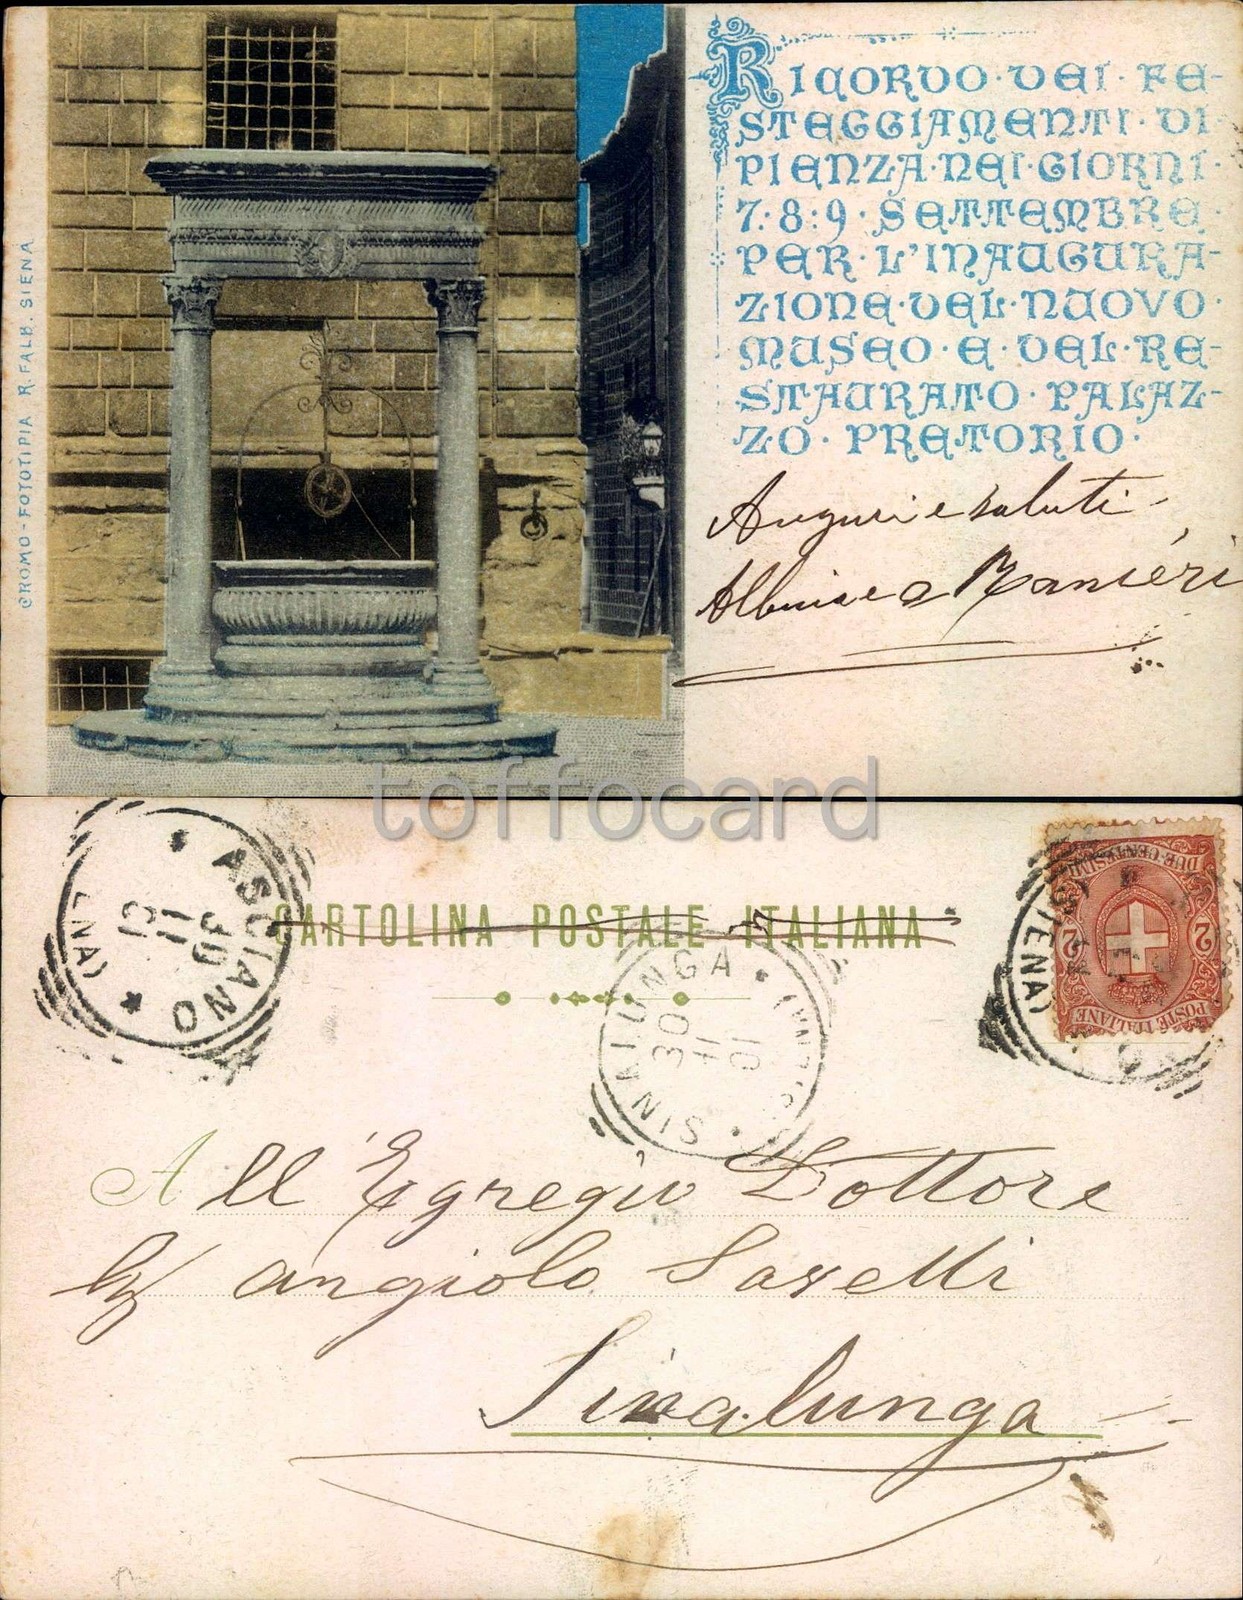 RICORDO · DEI · FE-
STEGGIAMENTI · DI
PIENZA · NEI · GIORNI ·
7: 8: 9 · SETTEMBRE ·
PER · L'INAUGURA-
ZIONE · DEL · NUOVO ·
MUSEO · E · DEL · RE-
STAURATO · PALAZ-
ZO · PRETORIO ·
CROMO-FOTOTIPIA R. FALB. SIENA
Auguri e saluti -
Ranieri
toffocard
ASCIANO
ENA)
30
11
01
CARTOLINA POSTALE ITALIANA
SINALUNGA
30
11
01
(SIENA)
DUE·CENTESIMI
2 2
POSTE ITALIANE
All'Egregio Dottore
Angiolo
Sinalunga